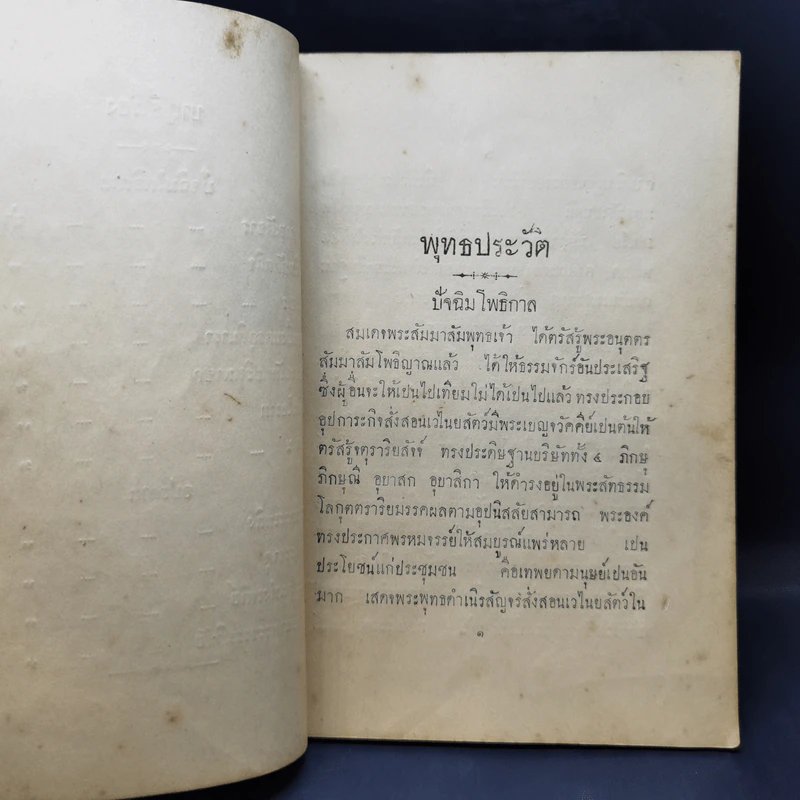 พุทธประวัติ
ปัจฉิมโพธิกาล
สมเดจพระสัมมาสัมพุทธเจ้า ได้ตรัสรู้พระอนุตตร
สัมมาสัมโพธิญาณแล้ว ได้ให้ธรรมจักร์อันประเสริฐ
ซึ่งผู้อื่นจะให้เปนไปเทียมไม่ได้เปนไปแล้ว ทรงประกอบ
อุปการะกิจสั่งสอนเวไนยสัตว์มีพระเบญจวัคคีย์เปนต้นให้
ตรัสรู้จตุราริยสัจจ์ ทรงประดิษฐานบริษัททั้ง ๔ ภิกษุ
ภิกษุณี อุบาสก อุบาสิกา ให้ดำรงอยู่ในพระสัทธรรม
โลกุตตราริยมรรคผลตามอุปนิสสัยสามารถ พระองค์
ทรงประกาศพรหมจรรย์ให้สมบูรณ์แพร่หลาย เปน
ประโยชน์แก่ประชุมชน คือเทพยดามนุษย์เปนอัน
มาก เสดจพระพุทธดำเนิรสัญจรสั่งสอนเวไนยสัตว์ใน
๑